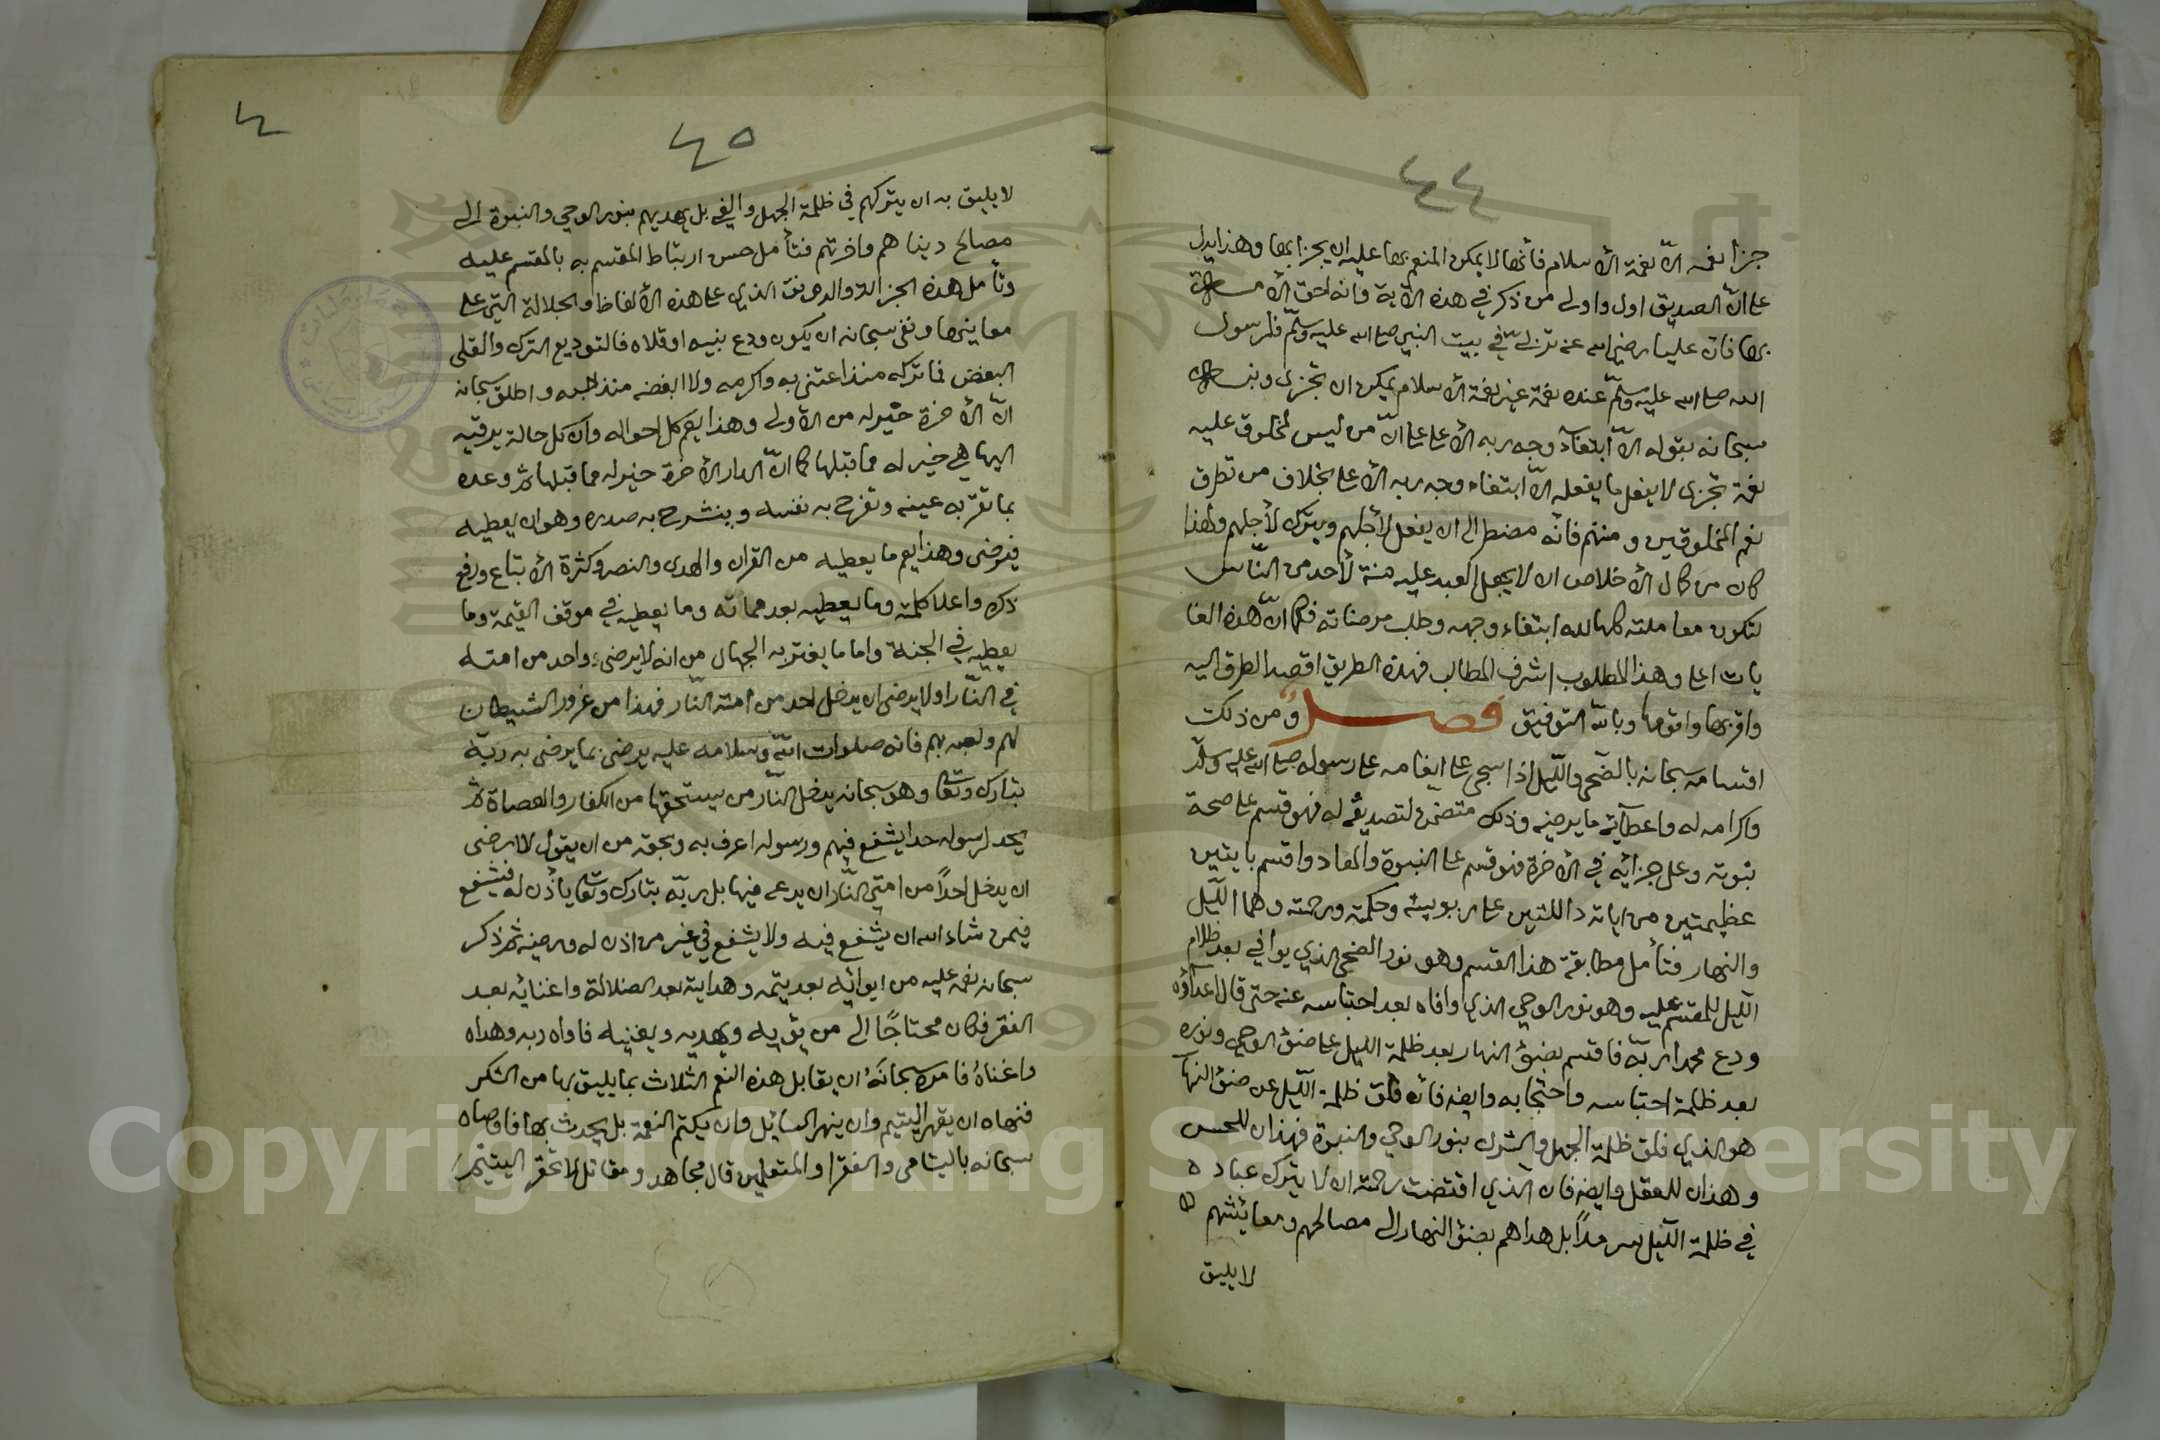 ٤٤
جزا نعمه الا نعمة الاسلام فأنها لا يمكن المنعم بها عليه ان يجزا بها وهذا يدل
على انّ الصديق اول واولى من ذكر في هذه الاية وانه احق الأمة
بها فان عليا رضى الله عنه تربّى في بيت النبي صلى الله عليه وسلّم فلرسول
الله صلى الله عليه وسلّم عنده نعمة غير نعمة الأسلام يمكن ان تجزى ونبه
سبحانه بقوله الّا ابتغآء وجه ربه الأعلى على انّ من ليس لمخلوق عليه
نعمة تجزى لا يفعل ما يفعله الّا ابتغاء وجه ربه الأعلى بخلاف من تطرق
نعم المخلوقين ومننهم فانّه مضطر الى ان يفعل لأجلهم ويترك لأجلهم ولهذا
كان من كمال الأخلاص ان لا يجعل العبد عليه منة لأحد من النّاس
لتكون معاملته كلها لله ابتغاء وجهه وطلب مرضاته فكما انّ هذه الغا
يات اعلى وهذا المطلوب اشرف المطالب فهذه الطريق اقصد الطرق اليه
واقربها واقومها وبالله التوفيق فصل ومن ذلك
اقسامه سبحانه بالضحى واللّيل اذا سجى على انعامه على رسوله صلى الله عليه وسلّم
واكرامه له واعطآئه ما يرضيه وذلك متضمن لتصديقه له فهو قسم على صحة
نبوته وعلى جزائه في الأخرة فهو قسم على النبوة والمعاد واقسم بايتين
عظيمتين من اياته دالتين على ربوبيته وحكمته ورحمته وهما اللّيل
والنهار فتأمل مطابقة هذا القسم وهو نور الضحى الذي يوافي بعد ظلام
اللّيل للمقسم عليه وهو نور الوحي الذي وافاه بعد احتباسه عنه حتى قال اعدآؤه
ودع محمدا ربّه فاقسم بضؤ النهار بعد ظلمة الليل على ضؤ الوحي ونوره
بعد ظلمة احتباسه واحتجابه وايضه فانّه فلق ظلمة اللّيل عن ضؤ النها
هو الذي فلق ظلمة الجهل والشرك بنور الوحي والنبوة فهذان للحس
وهذان للعقل وايضه فان الذي اقتضت رحمته ان لا يترك عباده
في ظلمة اللّيل سرمدًا بل هداهم بضؤ النهار الى مصالحهم ومعائشهم
لا يليق
٤٥
لا يليق به ان يتركهم في ظلمة الجهل والغي بل يهديهم بنور الوحي والنبوة الى
مصالح ديناهم واخرتهم فتأمل حسن ارتباط المقسم به بالمقسم عليه
وتأمل هذه الجزالة والرونق الذي على هذه الألفاظ والجلالة التي على
معانيها ونفى سبحانه ان يكون ودع نبيه او قلاه فالتوديع الترك والقلى
البغض فما تركه منذ اعتنى به واكرمه ولا ابغضه منذ احبه واطلق سبحانه
انّ الأخرة خير له من الاولى وهذا يعم كل احواله وان كل حالة يرقيه
اليها هي خير له مما قبلها كما انّ الدار الأخرة خير له مما قبلها ثم وعده
بما تقر به عينه وتفرح به نفسه وينشرح به صدره وهو ان يعطيه
فيرضى وهذا يعم ما يعطيه من القران والهدى والنصر وكثرة الأتباع ورفع
ذكره واعلا كلمته وما يعطيه بعد مماته وما يعطيه في موقف القيمة وما
يعطيه في الجنة واما ما يغتر به الجهال من انه لا يرضى وواحد من امته
في النّار او لا يرضى ان يدخل احد من امته النّار فهذا من غرور الشيطان
لهم ولعبه بهم فانه صلوات اللّه وسلامه عليه يرضى بما يرضى به ربّه
تبارك وتعا وهو سبحانه يدخل النّار من يستحقها من الكفار والعصاة ثم
يحد لرسوله حدا يشفع فيهم ورسوله اعرف به وبحقه من ان يقول لا ارضى
ان يدخل احدًا من امتي النّار ان يدعى فيها بل ربّه تبارك وتعا يأذن له فيشفع
فيمن شاء الله ان يشفع فيه ولا يشفع في غير من اذن له ورضيه ثم ذكر
سبحانه نعمه عليه من ايوائه بعد يتمه وهدايته بعد الضلالة واغنائه بعد
الفقر فكان محتاجًا الى من يؤويه ويهديه ويغنيه فاواه ربه وهداه
واغناهُ فامره سبحانهُ ان يقابل هذه النعم الثلاث بما يليق بها من الشكر
فنهاه ان يقهر اليتيم وان ينهر السائل وان يكتم النعمة بل يحدث بها فاوصاه
سبحانه باليتامى والفقرا والمتعلمين قال مجاهد ومقاتل لا تحقر اليتيم
٤٥
Copyright © King Saud University
1957